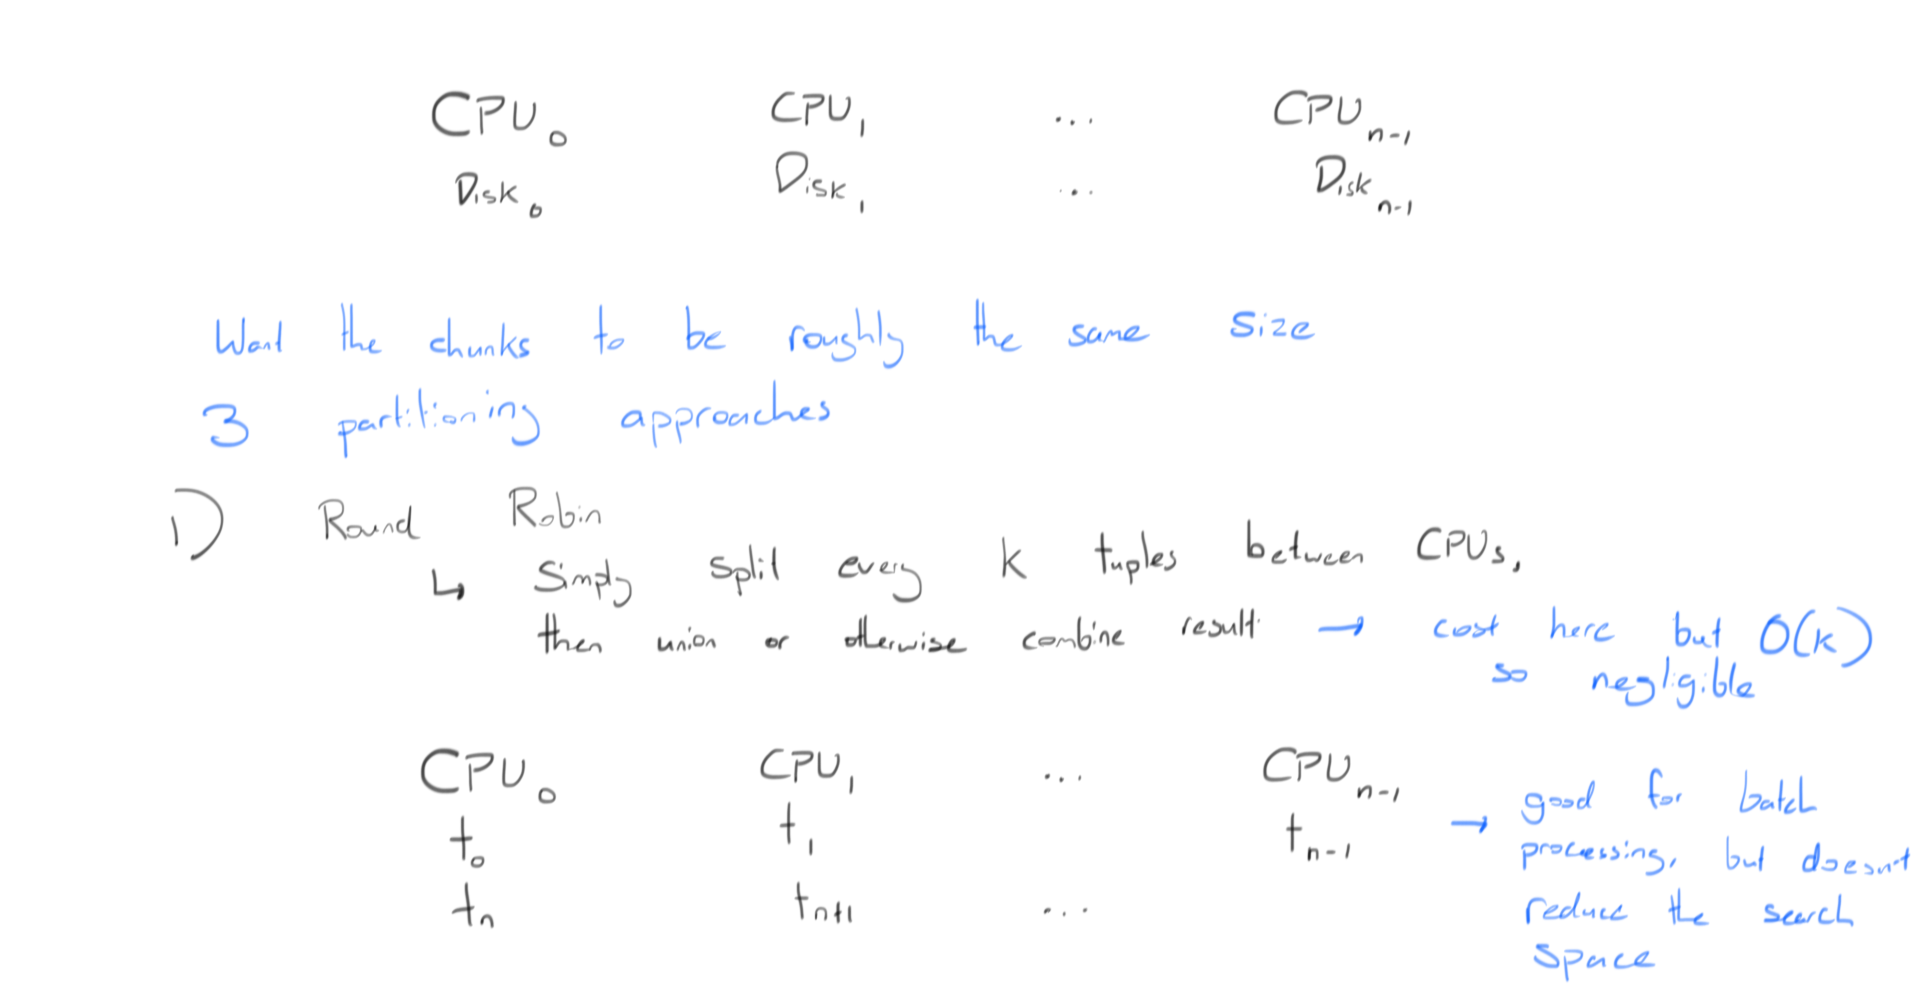 CPU₀ CPU₁ ... CPUₙ₋₁
Disk₀ Disk₁ ... Diskₙ₋₁
Want the chunks to be roughly the same size
3 partitioning approaches
1) Round Robin
↳ Simply split every k tuples between CPUs,
then union or otherwise combine result → cost here but O(k)
so negligible
CPU₀ CPU₁ ... CPUₙ₋₁
t₀ t₁ tₙ₋₁ → good for batch
processing, but doesn't
tₙ tₙ₊₁ ... reduce the search
space